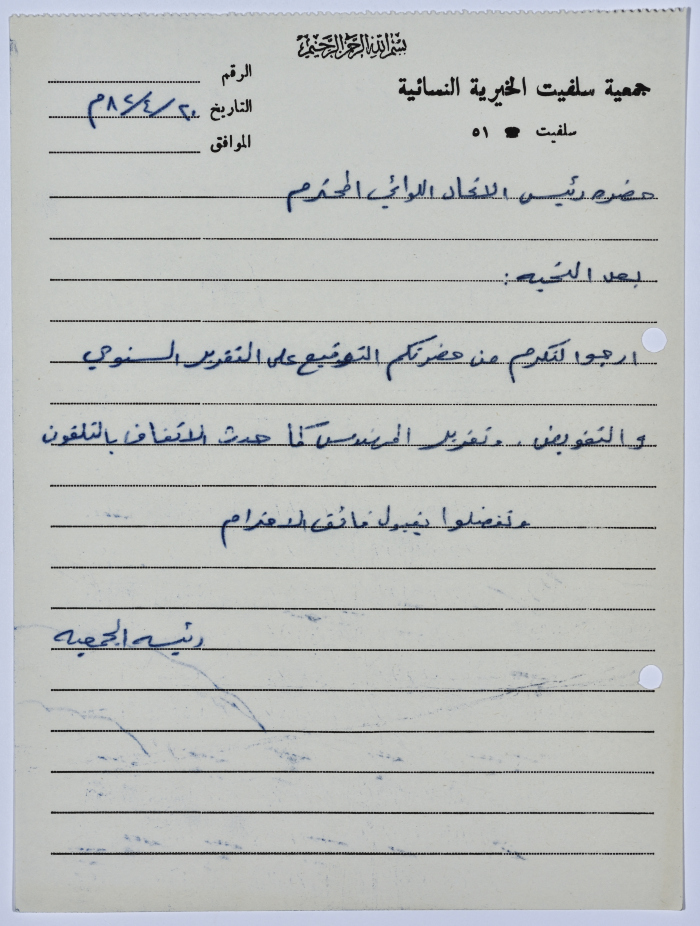 بسم الله الرحمن الرحيم
جمعية سلفيت الخيرية النسائية
سلفيت ☎ ٥١
الرقم
التاريخ ٢٠/٤/٨٢م
الموافق
حضرة رئيس الاتحاد اللوائي المحترم
بعد التحيه :
ارجوا التكرم من حضرتكم التوقيع على التقرير السنوي
والتفويض . وتقرير المهندس كما حدث الاتفاق بالتلفون
وتفضلوا بقبول فائق الاحترام
رئيسه الجمعيه